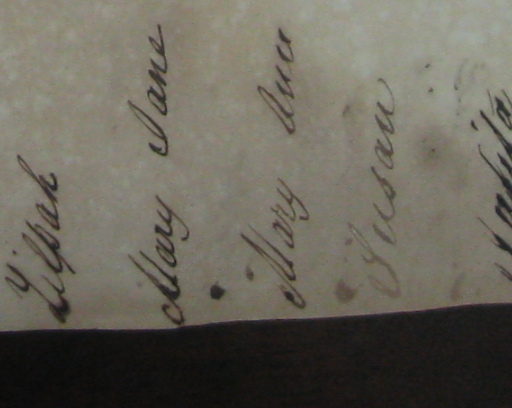 Zilpah
Mary Jane
Mary Ann
Susan